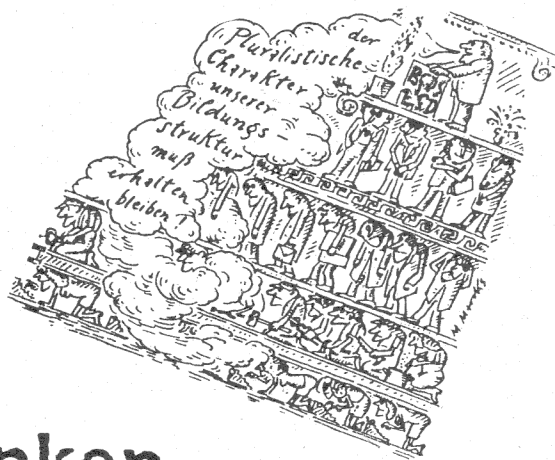 der
Pluralistische
Charakter
unserer
Bildungs-
struktur
muß
erhalten
bleiben!
M. MARCKS
nken